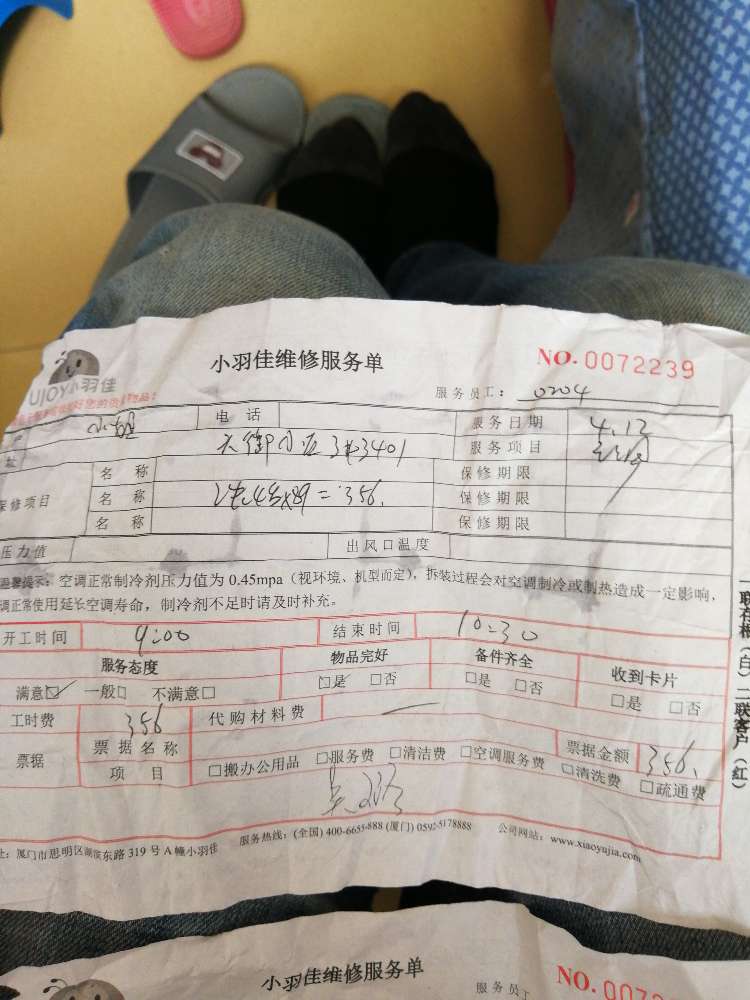 小羽佳维修服务单
NO. 0072239
UJOY小羽佳
服务员工: 0204
电话
服务日期 4.12
服务项目
名称
保修期限
保修项目 名称 ×89=356. 保修期限
名称
保修期限
压力值 出风口温度
温馨提示: 空调正常制冷剂压力值为0.45mpa (视环境、机型而定), 拆装过程会对空调制冷或制热造成一定影响,
调正常使用延长空调寿命, 制冷剂不足时请及时补充。
开工时间 9:00 结束时间 10:30
服务态度 物品完好 备件齐全 收到卡片
满意☑ 一般□ 不满意□ ☑是 □否 □是 □否 □是 □否
工时费 356 代购材料费 —
票据 票据名称 票据金额 356.
项目 □搬办公用品 □服务费 □清洁费 □空调服务费 □清洗费 □疏通费
一联存根(白) 二联客户(红)
址: 厦门市思明区湖滨东路319号A幢小羽佳 服务热线: (全国) 400-6655-888 (厦门) 0592-5178888 公司网站: www.xiaoyujia.com
小羽佳维修服务单
服务员工
NO. 0072